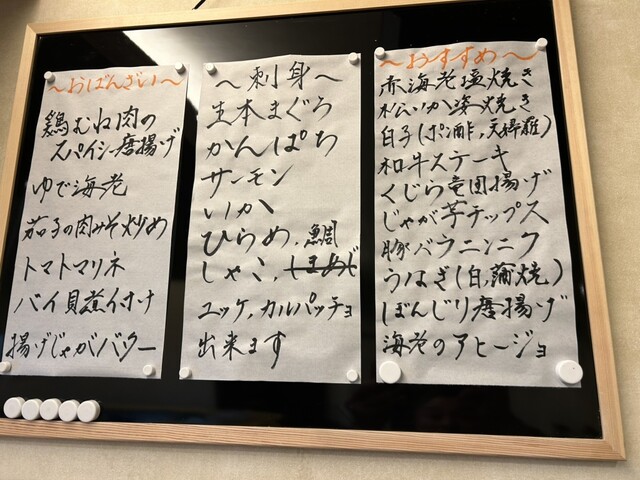 ～おばんざい～
鶏むね肉の
スパイシー唐揚げ
ゆで海老
茄子の肉みそ炒め
トマトマリネ
バイ貝煮付け
揚げじゃがバター
～刺身～
生本まぐろ
かんぱち
サーモン
いか
ひらめ、鯛
しゃこ、しまあじ
ユッケ、カルパッチョ
出来ます
～おすすめ～
赤海老塩焼き
松いか姿焼き
白子(ポン酢、天婦羅)
和牛ステーキ
くじら竜田揚げ
じゃが芋チップス
豚バラニンニク
うなぎ(白、蒲焼)
ぼんじり唐揚げ
海老のアヒージョ